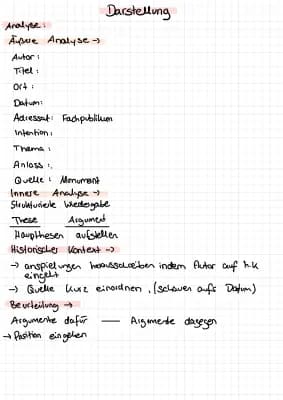 Darstellung
Analyse:
Äußere Analyse →
Autor:
Titel:
Ort:
Datum:
Adressat: Fachpublikum
Intention:
Thema:
Anlass:
Quelle: Monument
Innere Analyse →
Strukturierte Wiedergabe
These Argument
Hauptthesen aufstellen
Historischer Kontext →
→ anspielungen herausschreiben indem Autor auf h.k
eingeht
→ Quelle kurz einordnen, (schauen aufs Datum)
Beurteilung →
Argumente dafür — Argumente dagegen
→ Position eingehen